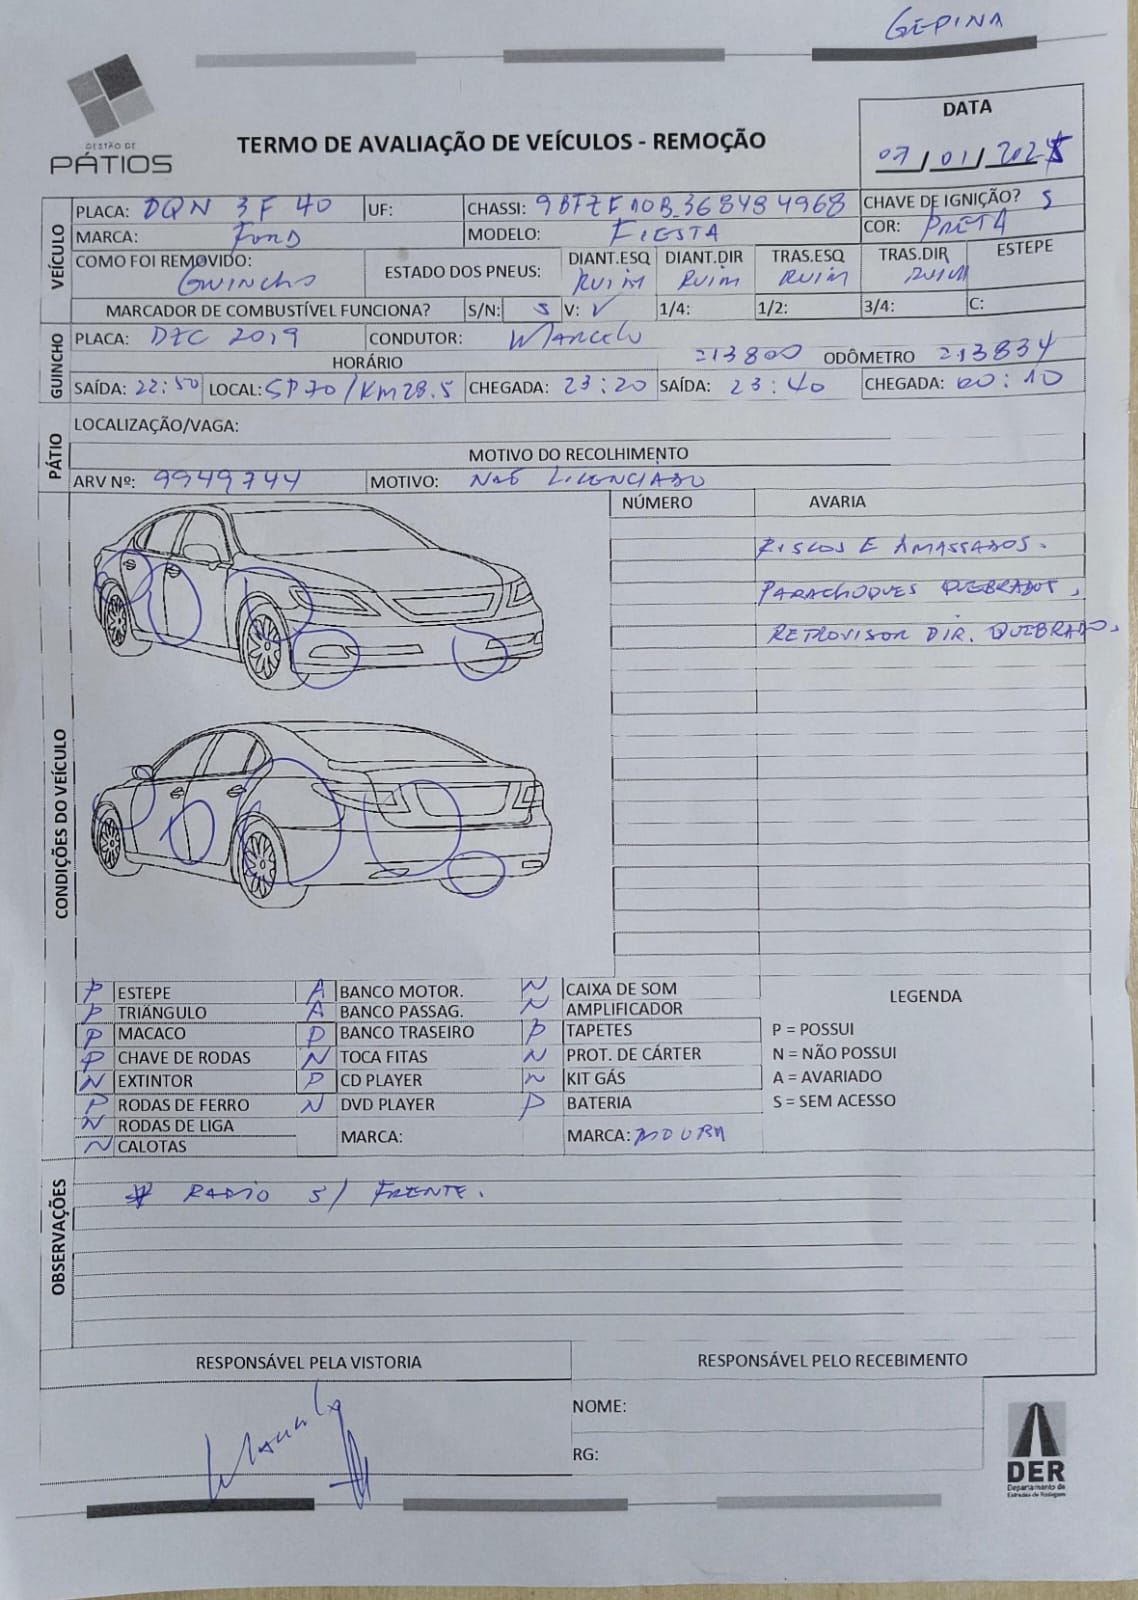 GEPINA
GESTÃO DE
PÁTIOS
TERMO DE AVALIAÇÃO DE VEÍCULOS - REMOÇÃO
DATA
07/01/2025
VEÍCULO
PLACA: DQN 3F40 UF: CHASSI: 9BFZF10B368484968 CHAVE DE IGNIÇÃO? S
MARCA: FORD MODELO: FIESTA COR: PRETA
COMO FOI REMOVIDO: GUINCHO ESTADO DOS PNEUS: DIANT.ESQ RUIM DIANT.DIR RUIM TRAS.ESQ RUIM TRAS.DIR RUIM ESTEPE
MARCADOR DE COMBUSTÍVEL FUNCIONA? S/N: S V: ✓ 1/4: 1/2: 3/4: C:
GUINCHO
PLACA: DZC 2019 CONDUTOR: MARCELO
HORÁRIO 213800 ODÔMETRO 213834
SAÍDA: 22:50 LOCAL: SP70/KM28.5 CHEGADA: 23:20 SAÍDA: 23:40 CHEGADA: 00:10
PÁTIO
LOCALIZAÇÃO/VAGA:
MOTIVO DO RECOLHIMENTO
ARV Nº: 9949744 MOTIVO: NÃO LICENCIADO
CONDIÇÕES DO VEÍCULO
NÚMERO AVARIA
RISCOS E AMASSADOS.
PARACHOQUES QUEBRADOS,
RETROVISOR DIR. QUEBRADO,
P ESTEPE A BANCO MOTOR. N CAIXA DE SOM
P TRIÂNGULO A BANCO PASSAG. N AMPLIFICADOR
P MACACO P BANCO TRASEIRO P TAPETES
P CHAVE DE RODAS N TOCA FITAS N PROT. DE CÁRTER
N EXTINTOR P CD PLAYER N KIT GÁS
P RODAS DE FERRO N DVD PLAYER P BATERIA
N RODAS DE LIGA MARCA: MARCA: MOURA
N CALOTAS
LEGENDA
P = POSSUI
N = NÃO POSSUI
A = AVARIADO
S = SEM ACESSO
OBSERVAÇÕES
* RADIO S/ FRENTE.
RESPONSÁVEL PELA VISTORIA RESPONSÁVEL PELO RECEBIMENTO
NOME:
RG:
DER
Departamento de
Estradas de Rodagem